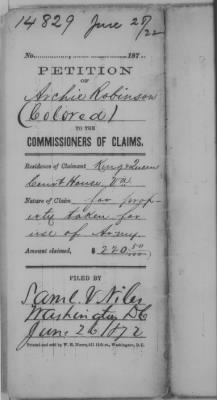 14829 June 26/72
No. 187
PETITION
OF
Archie Robinson
(Colored)
TO THE
COMMISSIONERS OF CLAIMS.
Residence of Claimant King & Queen
Court House, Va
Nature of Claim for prop-
erty taken for
use of Army.
Amount claimed, $ 220.50/100
FILED BY
Saml. V Niles
Washington DC
June 26 1872
Printed and sold by W. H. Moore, 511 11th st., Washington, D. C.